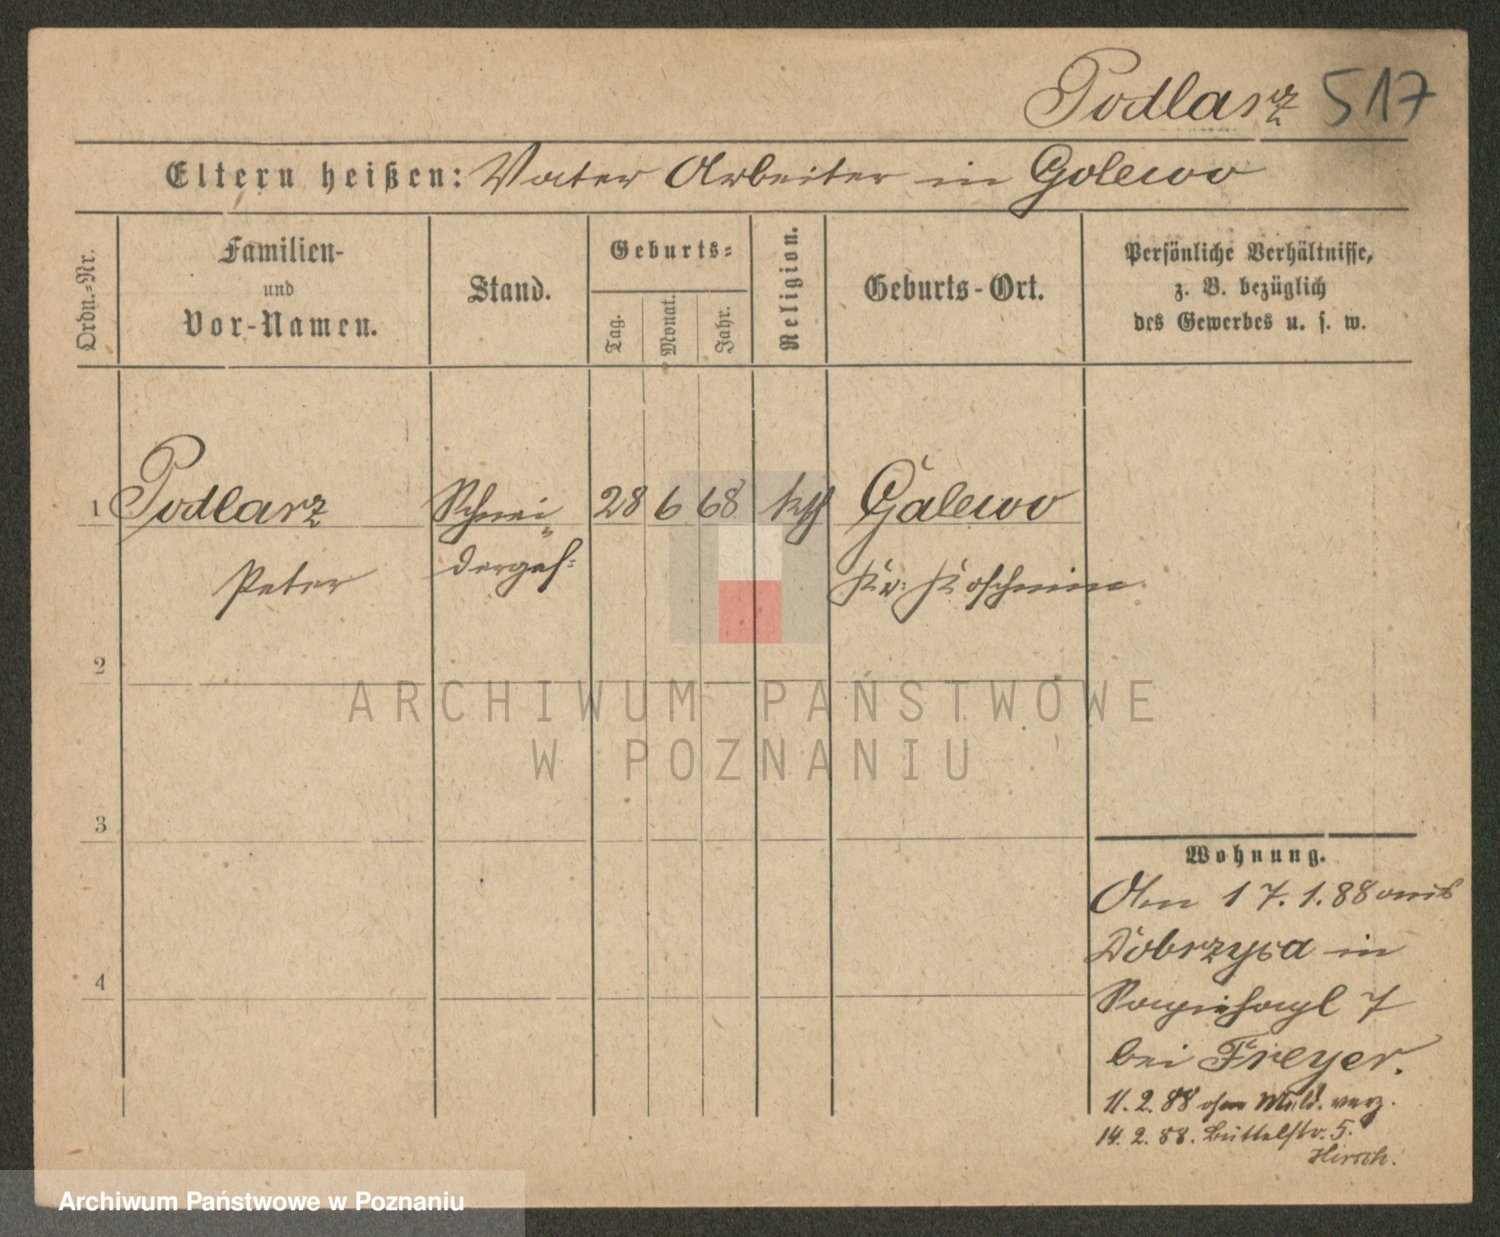 Podlarz 517
Eltern heißen: Vater Arbeiter in Golewo
Ordn.-Nr.
Familien-
und
Vor-Namen.
Stand.
Geburts-
Tag.
Monat.
Jahr.
Religion.
Geburts-Ort.
Persönliche Verhältnisse,
z. B. bezüglich
des Gewerbes u. s. w.
1 Podlarz Schnei 28 6 68 kth Galewo
Peter derges: Kr: Koschmin
2
3
4
ARCHIWUM PAŃSTWOWE
W POZNANIU
Wohnung.
Am 17.1.88 aus
Dobrzyca in
7
bei Freyer.
11.2.88 ohne Meld. verz.
14.2.88. Büttelstr. 5.
Hirsch.
Archiwum Państwowe w Poznaniu